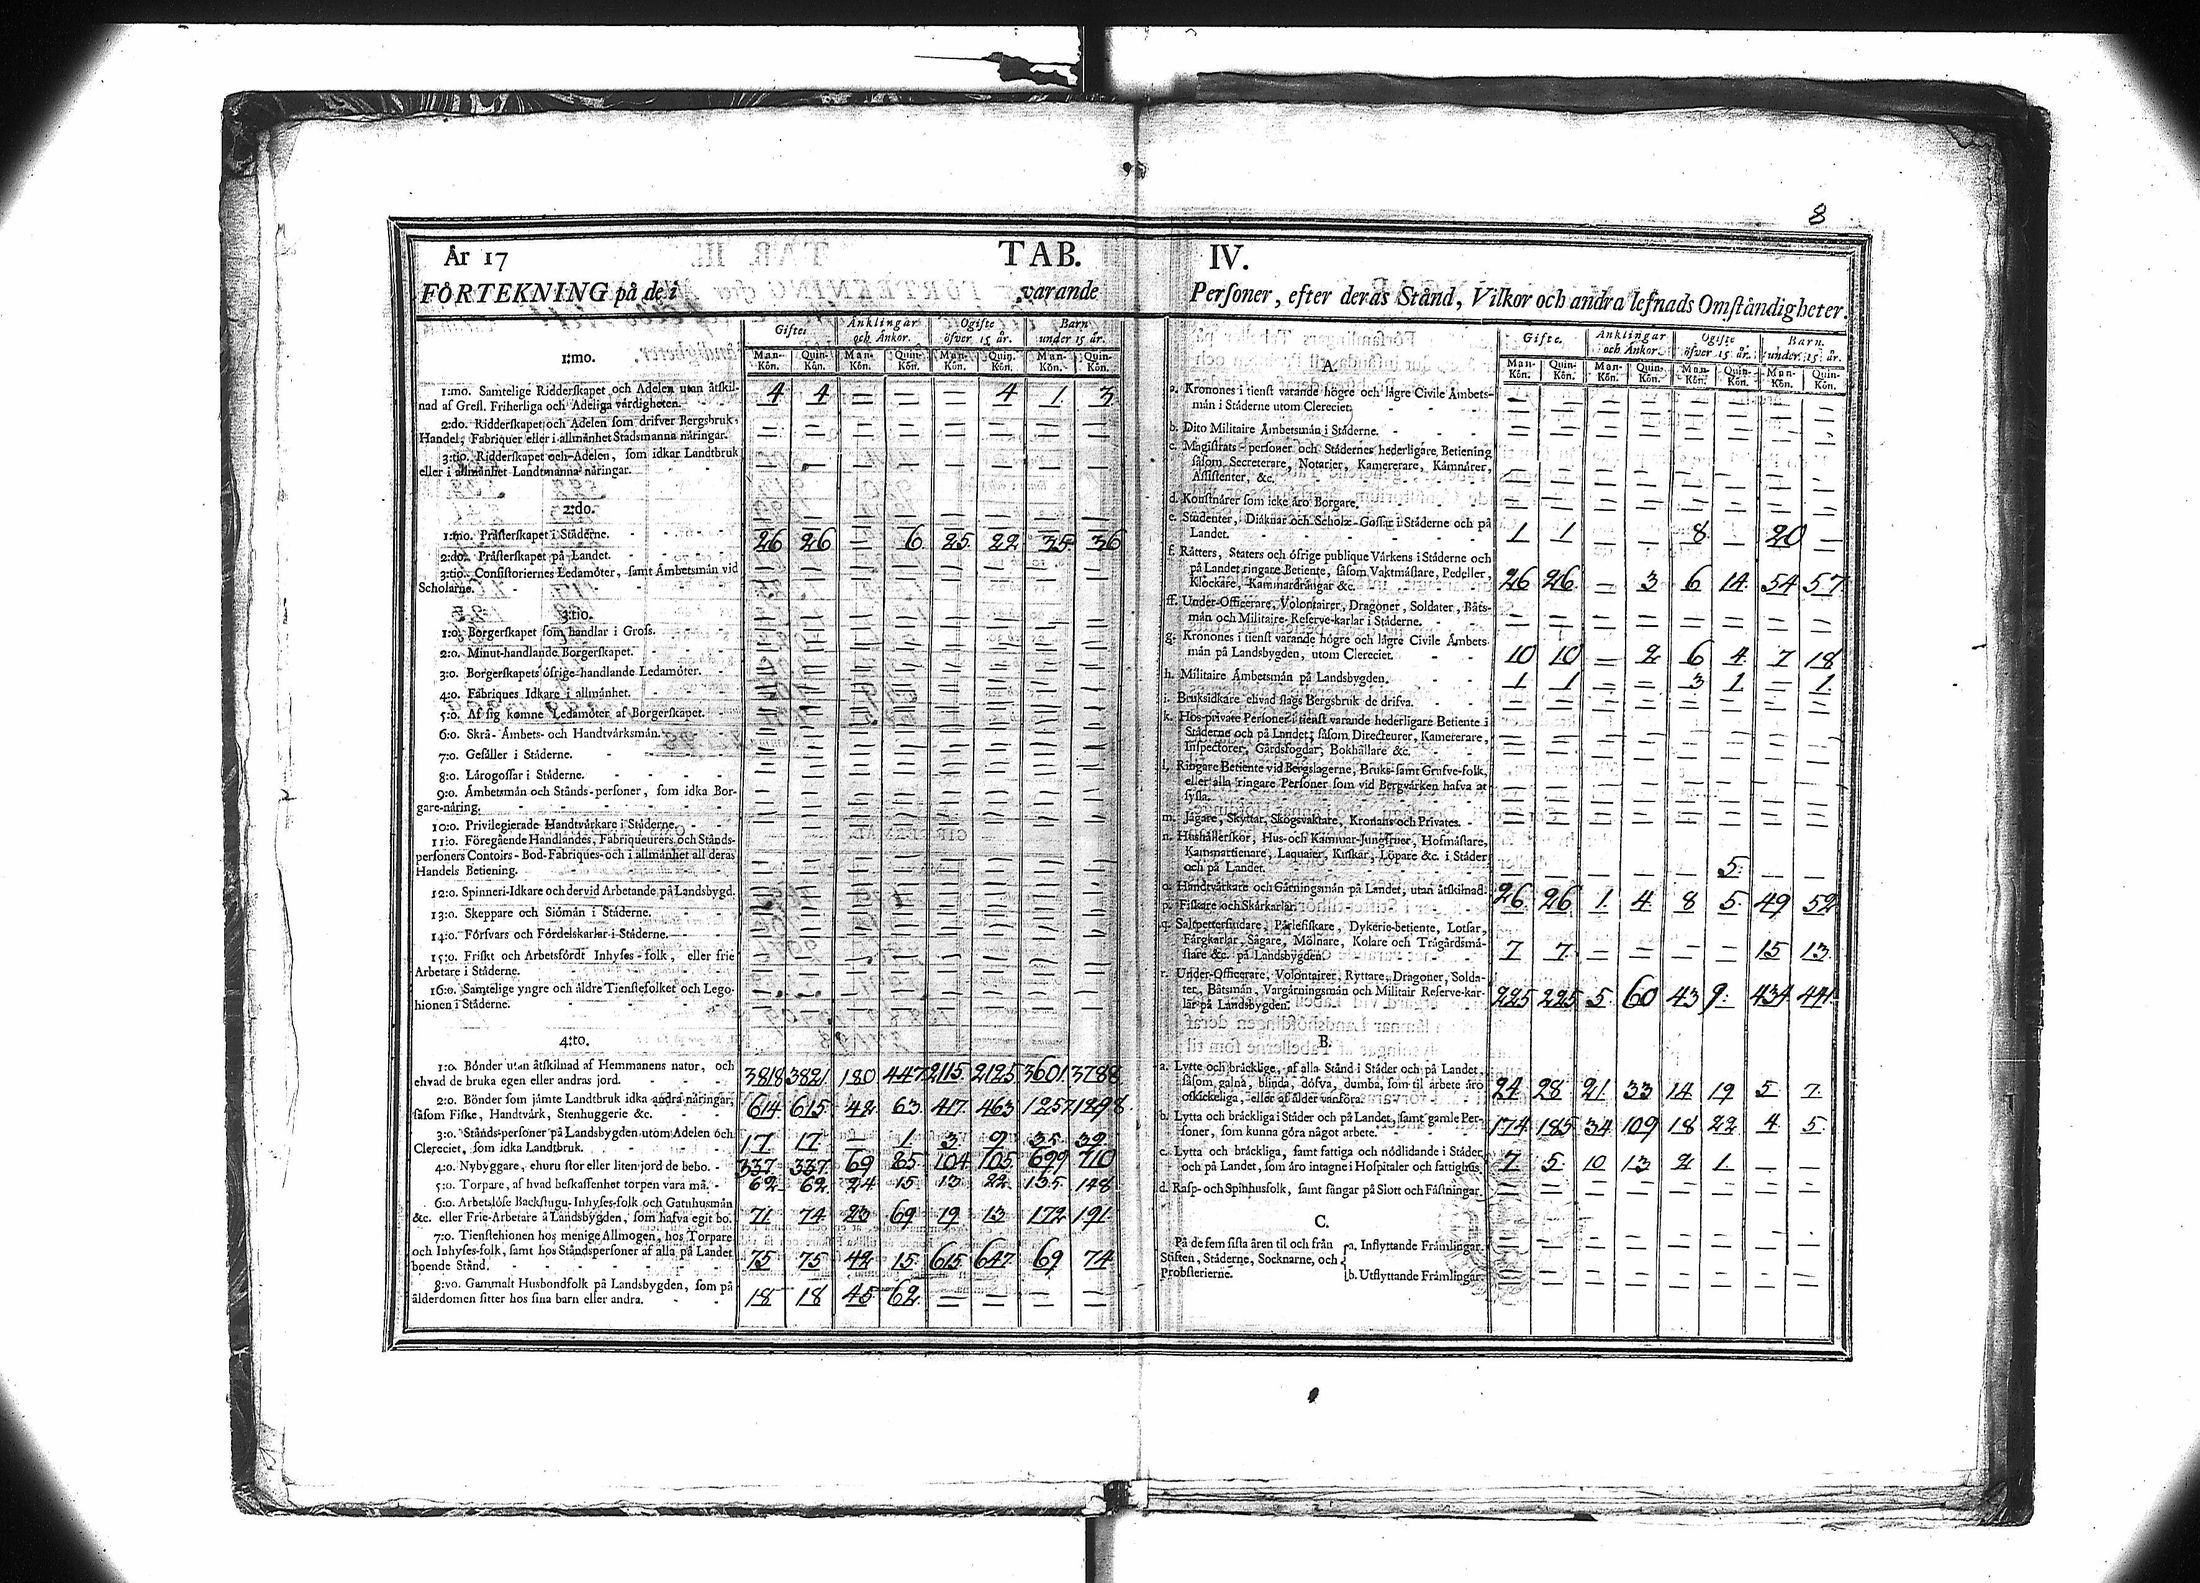 8
År 17 TAB. IV.
FÖRTEKNING på de i varande Perſoner, efter deras Stånd, Vilkor och andra lefnads Omſtåndigheter.
Gifte. Änklingar och Änkor. Ogifte öfver 15 år. Barn under 15 år.
Man-Kön. Quin-Kön. Man-Kön. Quin-Kön. Man-Kön. Quin-Kön. Man-Kön. Quin-Kön.
1:mo.
1:mo. Samtelige Ridderſkapet och Adelen utan åtſkil-
nad af Grefl. Friherliga och Adeliga värdigheten. 4 4 — — — 4 1 3
2:do. Ridderſkapet och Adelen ſom drifver Bergsbruk,
Handel, Fabriquer eller i allmänhet Stadsmanna näringar. — — — — — — — —
3:tio. Ridderſkapet och Adelen, ſom idkar Landtbruk
eller i allmänhet Landtmanna näringar. — — — — — — — —
2:do.
1:mo. Präſterſkapet i Städerne. — — — — — — — —
2:do. Präſterſkapet på Landet. 26 26 — 6 25 22 35 36
3:tio. Conſiſtoriernes Ledamöter, ſamt Ämbetsmän vid
Scholarne. — — — — — — — —
3:tio.
1:o. Borgerſkapet ſom handlar i Groſs.
2:o. Minut-handlande Borgerſkapet.
3:o. Borgerſkapets öfrige handlande Ledamöter.
4:o. Fabriques Idkare i allmänhet.
5:o. Af ſig komne Ledamöter af Borgerſkapet.
6:o. Skrå-Ämbets- och Handtvärksmän.
7:o. Geſäller i Städerne.
8:o. Lärogoſſar i Städerne.
9:o. Ämbetsmän och Stånds-perſoner, ſom idka Bor-
gare-näring.
10:o. Privilegierade Handtvärkare i Städerne.
11:o. Föregående Handlandes, Fabriqueurers och Stånds-
perſoners Contoirs-Bod-Fabriques-och i allmänhet all deras
Handels Betiening.
12:o. Spinneri-Idkare och dervid Arbetande på Landsbygd.
13:o. Skeppare och Siömän i Städerne.
14:o. Förſvars och Fördelskarlar i Städerne.
15:o. Friſkt och Arbetsfördt Inhyſes-folk, eller frie
Arbetare i Städerne.
16:o. Samtelige yngre och äldre Tienſtefolket och Lego-
hionen i Städerne.
4:to.
1:o. Bönder utan åtſkilnad af Hemmanens natur, och
ehvad de bruka egen eller andras jord. 3818 3821 180 447 2115 2125 3601 3788
2:o. Bönder ſom jämte Landtbruk idka andra näringar,
ſåſom Fiſke, Handtvärk, Stenhuggerie &c. 614 615 42 63 417 463 1257 1298
3:o. Stånds-perſoner på Landsbygden utom Adelen och
Clereciet, ſom idka Landtbruk. 17 17 — 1 3 9 35 39
4:o. Nybyggare, ehuru ſtor eller liten jord de bebo. 337 337 69 85 104 105 699 710
5:o. Torpare, af hvad beſkaffenhet torpen vara må. 62 62 24 15 13 22 135 148
6:o. Arbetslöſe Backſtugu-Inhyſes-folk och Gatuhusmän
&c. eller Frie-Arbetare å Landsbygden, ſom hafva egit bo. 71 74 23 69 19 13 172 191
7:o. Tienſtehionen hos menige Allmogen, hos Torpare
och Inhyſes-folk, ſamt hos Ståndsperſoner af alla på Landet
boende Stånd. 75 75 42 15 615 647 69 74
8:vo. Gammalt Husbondfolk på Landsbygden, ſom på
ålderdomen ſitter hos ſina barn eller andra. 18 18 45 62 — — — —
Gifte. Änklingar och Änkor. Ogifte öfver 15 år. Barn. under 15 år.
Man-Kön. Quin-Kön. Man-Kön. Quin-Kön. Man-Kön. Quin-Kön. Man-Kön. Quin-Kön.
A.
a. Kronones i tienſt varande högre och lägre Civile Ämbets-
män i Städerne utom Clereciet. — — — — — — — —
b. Dito Militaire Ämbetsmän i Städerne. — — — — — — — —
c. Magiſtrats-perſoner och Städernes hederligare Betiening
ſåſom Secreterare, Notarier, Kamererare, Kämnärer,
Aſſiſtenter, &c. — — — — — — — —
d. Konſtnärer ſom icke äro Borgare. — — — — — — — —
e. Studenter, Diäknar och Scholæ-Goſſar i Städerne och på
Landet. 1 1 — — 8 — 20 —
f. Rätters, Staters och öfrige publique Värkens i Städerne och
på Landet ringare Betiente, ſåſom Vaktmäſtare, Pedeller,
Klockare, Kammardrängar &c. 26 26 — 3 6 14 54 57
ff. Under-Officerare, Volontairer, Dragoner, Soldater, Båts-
män och Militaire-Reſerve-karlar i Städerne. — — — — — — — —
g. Kronones i tienſt varande högre och lägre Civile Ämbets-
män på Landsbygden, utom Clereciet. 10 10 — 2 6 4 7 18
h. Militaire Ämbetsmän på Landsbygden. 1 1 — — 3 1 — 1
i. Bruksidkare ehvad ſlags Bergsbruk de drifva. — — — — — — — —
k. Hos private Perſoner i tienſt varande hederligare Betiente i
Städerne och på Landet; ſåſom Directeurer, Kamererare,
Inſpectorer, Gårdsfogdar, Bokhållare &c. — — — — — — — —
l. Ringare Betiente vid Bergslagerne, Bruks-ſamt Grufve-folk,
eller alla ringare Perſoner ſom vid Bergvärken hafva at
ſyſla. — — — — — — — —
m. Jägare, Skyttar, Skogsvaktare, Kronans och Privates. — — — — — — — —
n. Hushållerſkor, Hus-och Kammar-Jungfruer, Hofmäſtare,
Kammartienare, Laquaier, Kuſkar, Löpare &c. i Städer
och på Landet. — — — — — 5 — —
o. Handtvärkare och Gärningsmän på Landet, utan åtſkilnad. 26 26 1 4 8 5 49 52
p. Fiſkare och Skärkarlar. — — — — — — — —
q. Salpetterſiudare, Pärlefiſkare, Dykerie-betiente, Lotſar,
Färgkarlar, Sågare, Mölnare, Kolare och Trägårdsmä-
ſtare &c. på Landsbygden. 7 7 — — — — 15 13
r. Under-Officerare, Volontairer, Ryttare, Dragoner, Solda-
ter, Båtsmän, Vargärningsmän och Militair Reſerve-kar-
lar på Landsbygden. 225 225 5 60 43 9 434 441
B.
a. Lytte och bräcklige, af alla Stånd i Städer och på Landet,
ſåſom galna, blinda, döfva, dumba, ſom til arbete äro
oſkickeliga, eller af ålder vanföra. 24 28 21 33 14 19 5 7
b. Lytta och bräckliga i Städer och på Landet, ſamt gamle Per-
ſoner, ſom kunna göra något arbete. 174 185 34 109 18 22 4 5
c. Lytta och bräckliga, ſamt fattiga och nödlidande i Städer
och på Landet, ſom äro intagne i Hoſpitaler och fattighus. 7 5 10 13 2 1 — —
d. Raſp-och Spinhusfolk, ſamt fångar på Slott och Fäſtningar. — — — — — — — —
C.
På de fem ſiſta åren til och från
Stiften, Städerne, Socknarne, och
Probſterierne.
a. Inflyttande Främlingar. — — — — — — — —
b. Utflyttande Främlingar. — — — — — — — —